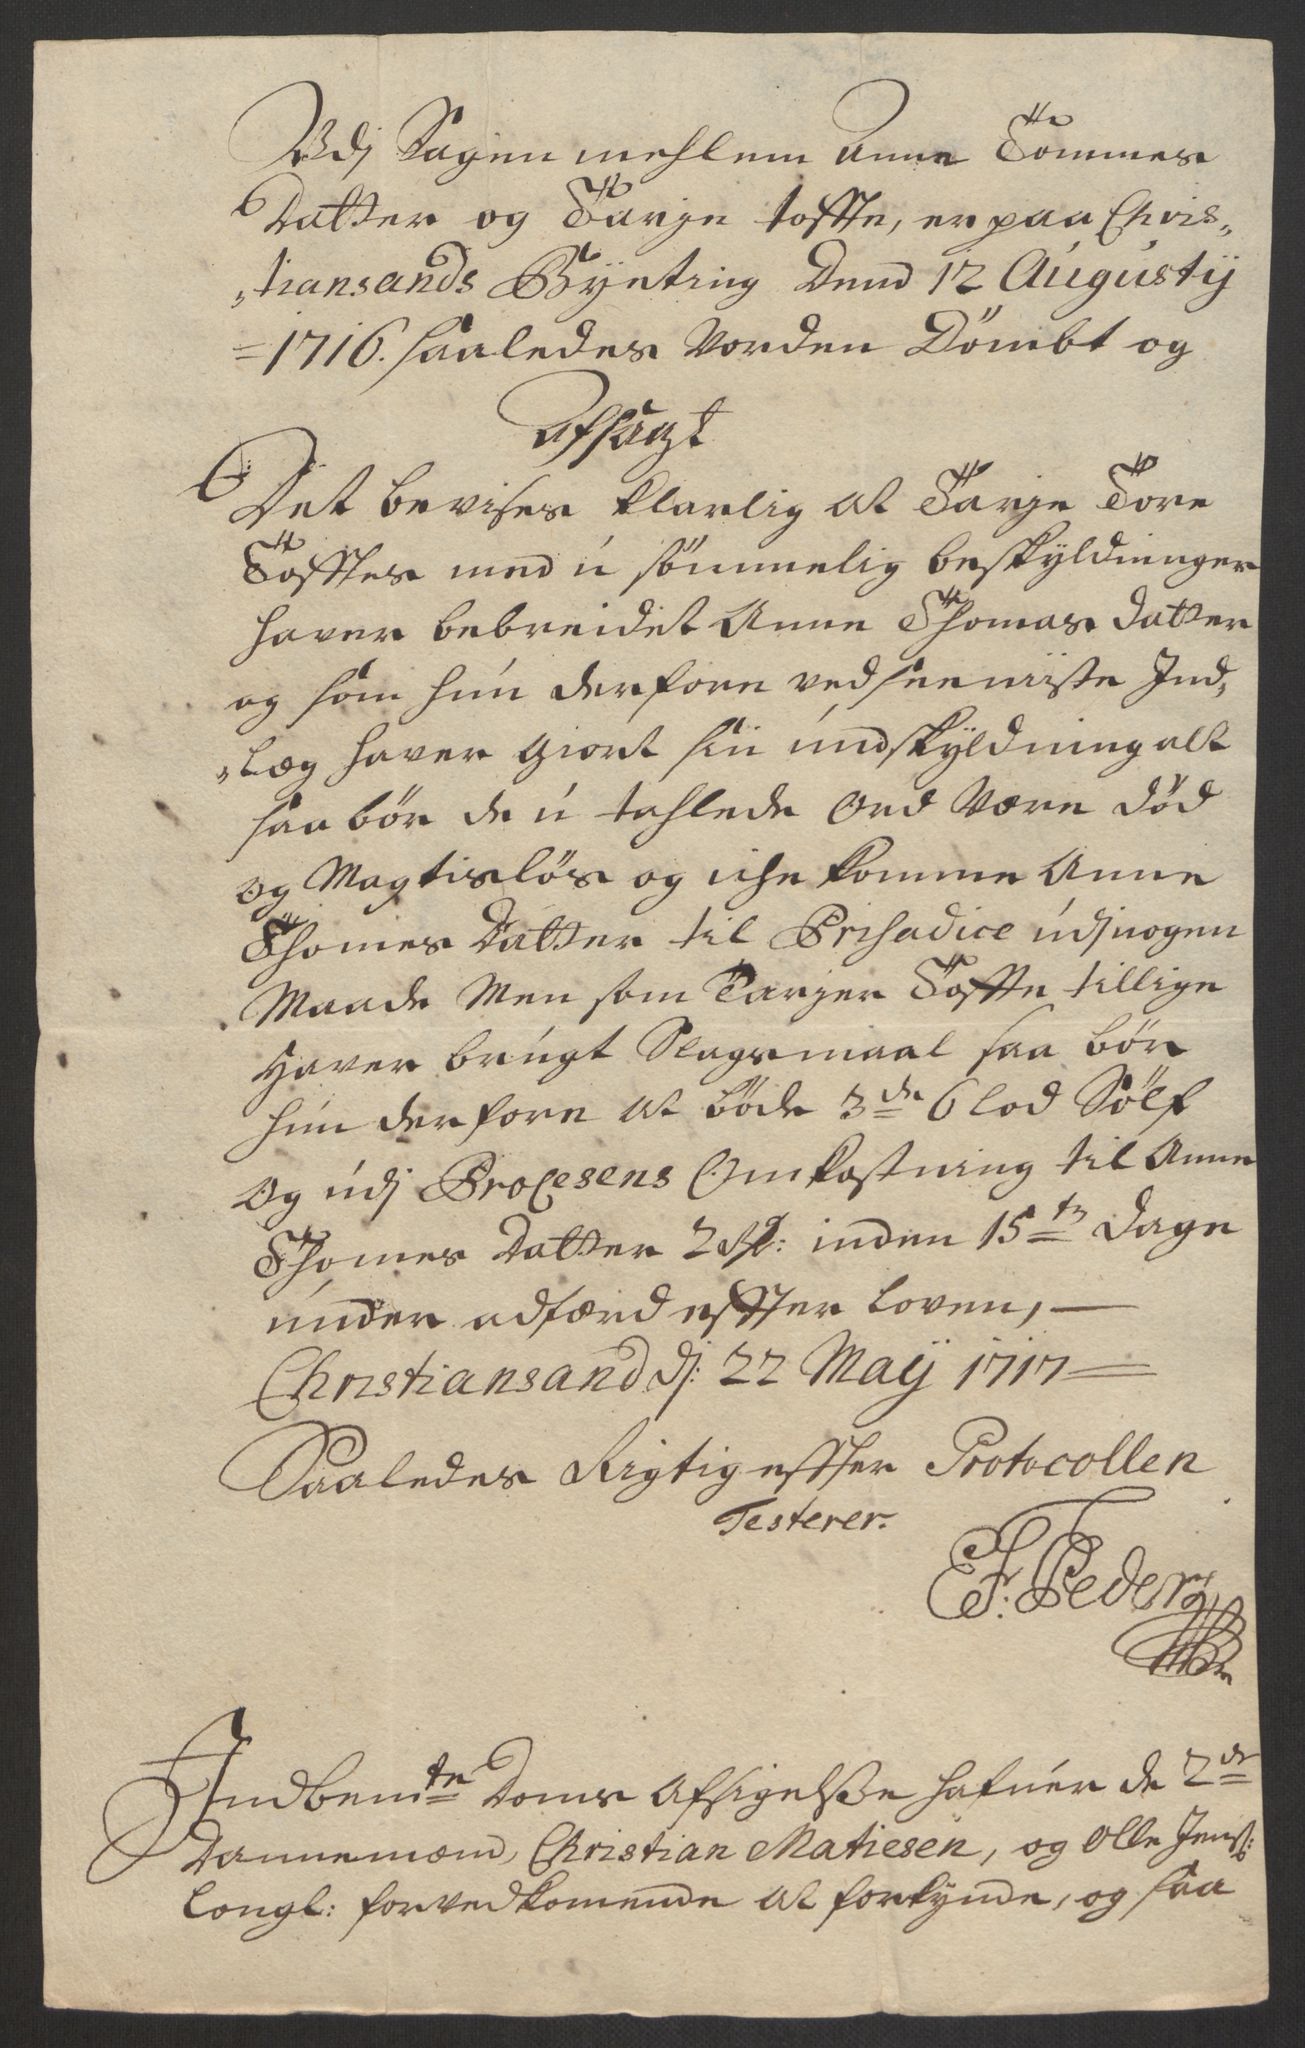 Udj Sagen mehlem Anne Tommes
Datter og Tarje toffte, er paa Chris„
„tiansands Byeting Dend 12 Augustij
=1716. saaledes Vorden Dömbt og
Afsagt
Det bevises klarlig at Tarje Tore
Tofftes med ú sömmelig beskyldninger
haver bebreidet Anne Thomas Datter
og som hún derfore ved seeniste Ind„
„læg haver giort sin úndskyldning alt
saa bör de ú tahlede Ord Være död
og Magtislös og iche komme Anne
Thomes Datter til Prisadice údj nogen
Maade Men som Tarjer Toffte tillige
Haver brúgt Slagsmaal saa bör
hún derfore at böde 3de 6 lod Sölf
Og údj Procesens Omkostning til Anne
Thomes Datter 2 Rd: inden 15ten Dage
únder adfærd effter loven, —
Christiansand dj: 22 Maij 1717 —
Saaledes Rigtig effter Protocollen
Testerer.
E. F: Peders
Indbemte Doms Afsigelsse hafúer de 2de
Dannemænd, Christian Matiesen, og Olle Jenss:
Longl: for vedkomende at forkynde, og saa